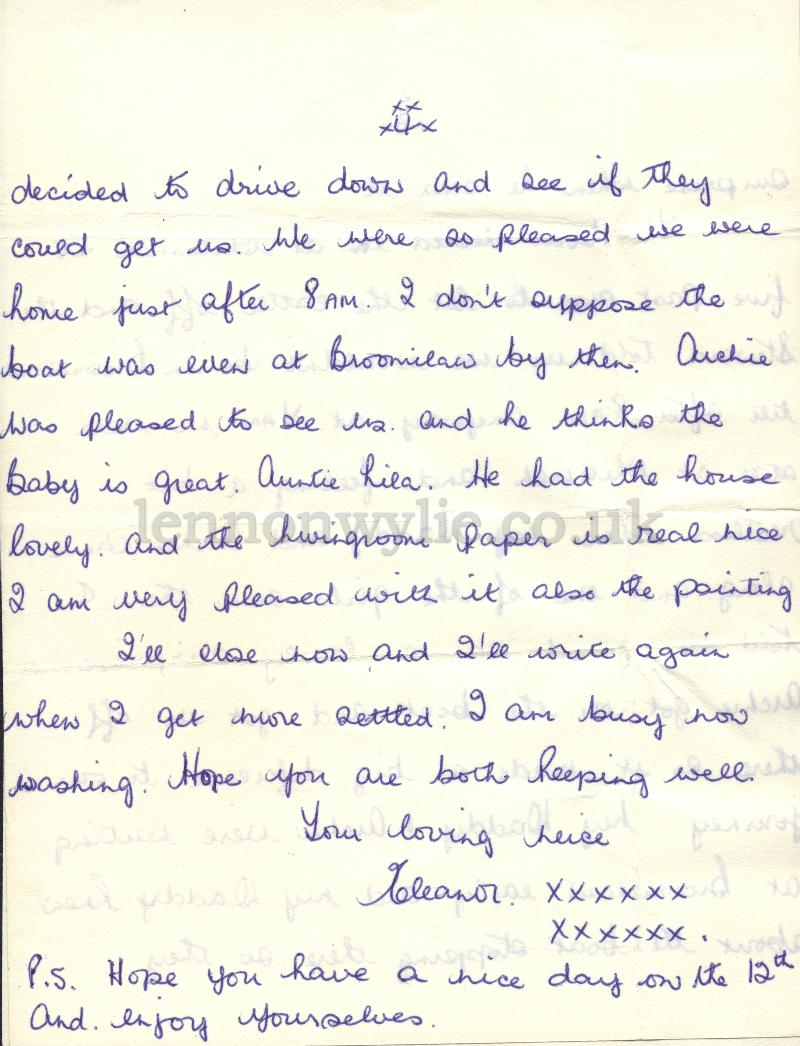 xx
x4x
decided to drive down and see if they
could get us. We were so pleased we were
home just after 8AM. I don't suppose the
boat was even at Broomilaw by then. Archie
was pleased to see us. and he thinks the
Baby is great. Auntie Lila. He had the house
lennonwylie.co.uk
lovely. And the livingroom Paper is real nice
I am very pleased with it also the painting
I'll close now and I'll write again
when I get more settled. I am busy now
washing. Hope you are both keeping well.
Your loving neice
Eleanor. xxxxxx
xxxxxx.
P.S. Hope you have a nice day on the 12th
And. enjoy yourselves.